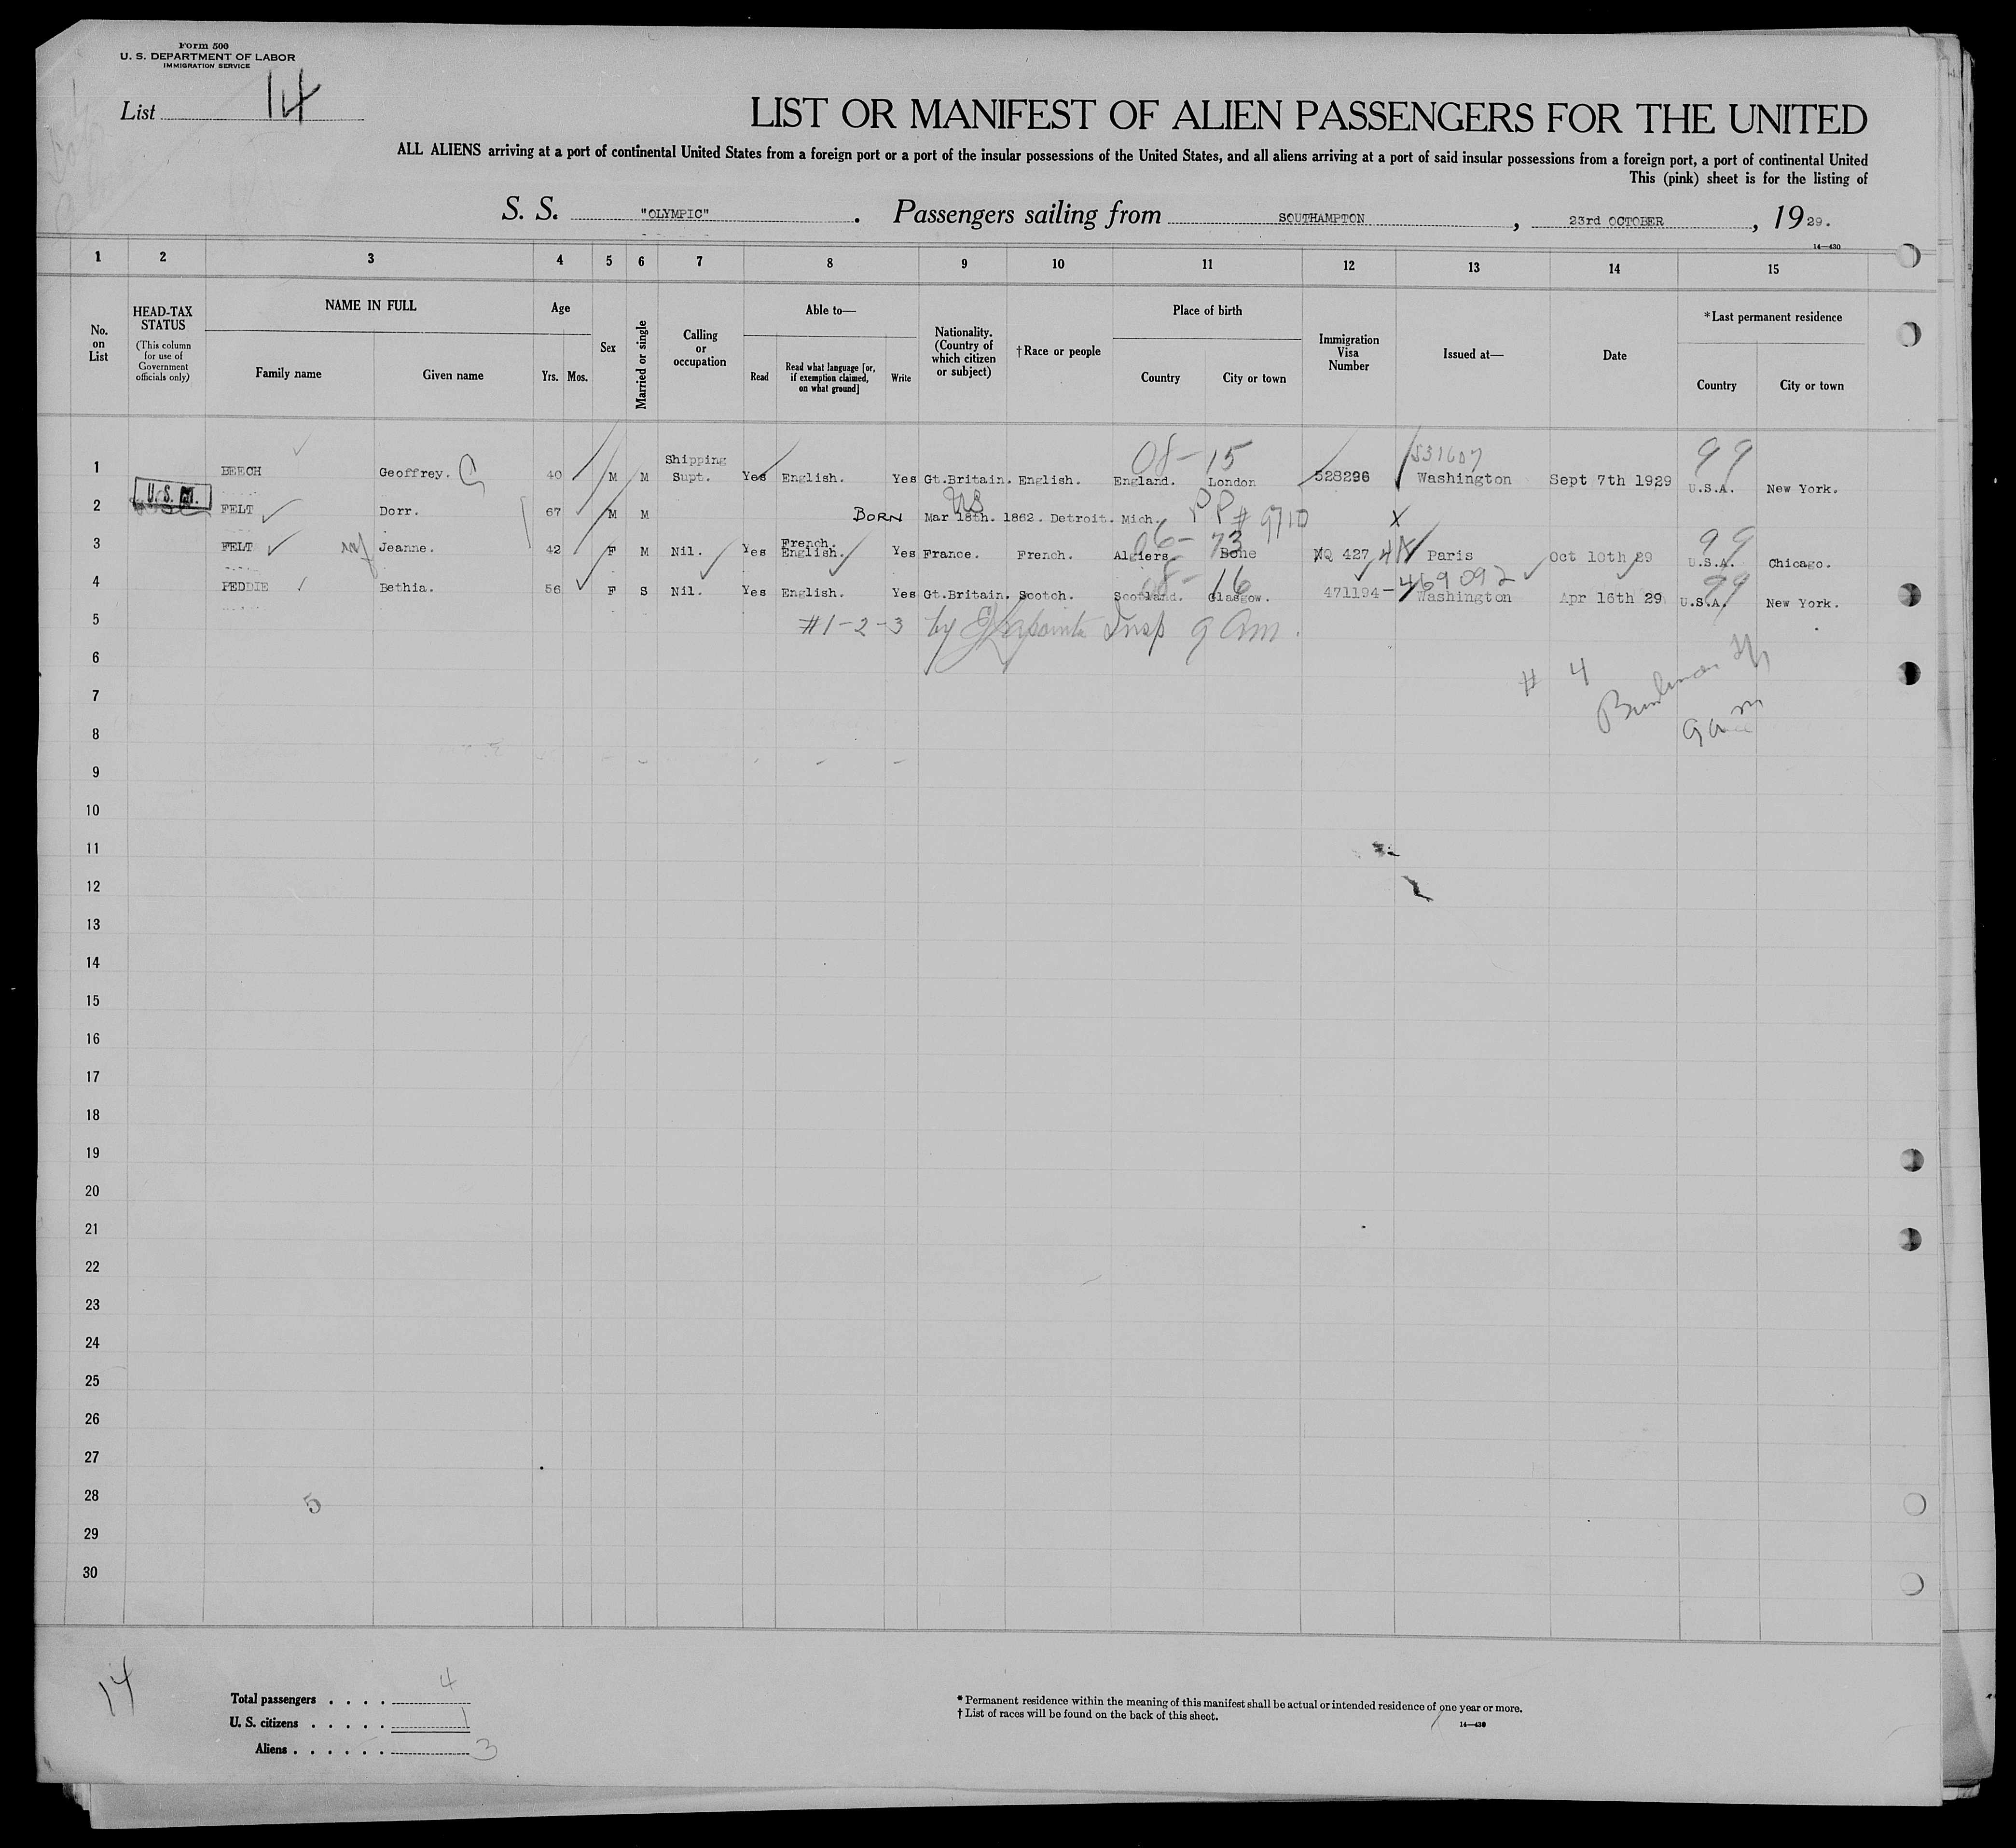 Form 500
U. S. DEPARTMENT OF LABOR
IMMIGRATION SERVICE
List 14
LIST OR MANIFEST OF ALIEN PASSENGERS FOR THE UNITED
ALL ALIENS arriving at a port of continental United States from a foreign port or a port of the insular possessions of the United States, and all aliens arriving at a port of said insular possessions from a foreign port, a port of continental United
This (pink) sheet is for the listing of
S. S. "OLYMPIC". Passengers sailing from SOUTHAMPTON, 23rd OCTOBER, 1929.
14—430
1 2 3 4 5 6 7 8 9 10 11 12 13 14 15
No. on List
HEAD-TAX STATUS
(This column for use of Government officials only)
NAME IN FULL
Family name Given name
Age
Yrs. Mos.
Sex
Married or single
Calling or occupation
Able to—
Read
Read what language [or, if exemption claimed, on what ground]
Write
Nationality. (Country of which citizen or subject)
†Race or people
Place of birth
Country City or town
Immigration Visa Number
Issued at—
Date
*Last permanent residence
Country City or town
08-15 531607 99
1 BEECH Geoffrey. 40 M M Shipping Supt. Yes English. Yes Gt.Britain. English. England. London 528296 Washington Sept 7th 1929 U.S.A. New York.
U. S. US PP# 9710
2 FELT Dorr. 67 M M BORN Mar 18th. 1862. Detroit. Mich. X
06-73 99
3 FELT Jeanne. 42 F M Nil. Yes French. English. Yes France. French. Algiers. Bone NQ 427 Paris Oct 10th 29 U.S.A. Chicago.
08-16 469092 99
4 PEDDIE Bethia. 56 F S Nil. Yes English. Yes Gt.Britain. Scotch. Scotland. Glasgow. 471194- Washington Apr 16th 29 U.S.A. New York.
5 #1-2-3 by Insp 9 am.
6 # 4
7
8 9 am
9
10
11
12
13
14
15
16
17
18
19
20
21
22
23
24
25
26
27
28 5
29
30
14
Total passengers . . . . 4
U. S. citizens . . . . . 1
Aliens . . . . . . 3
* Permanent residence within the meaning of this manifest shall be actual or intended residence of one year or more.
† List of races will be found on the back of this sheet.
14—430